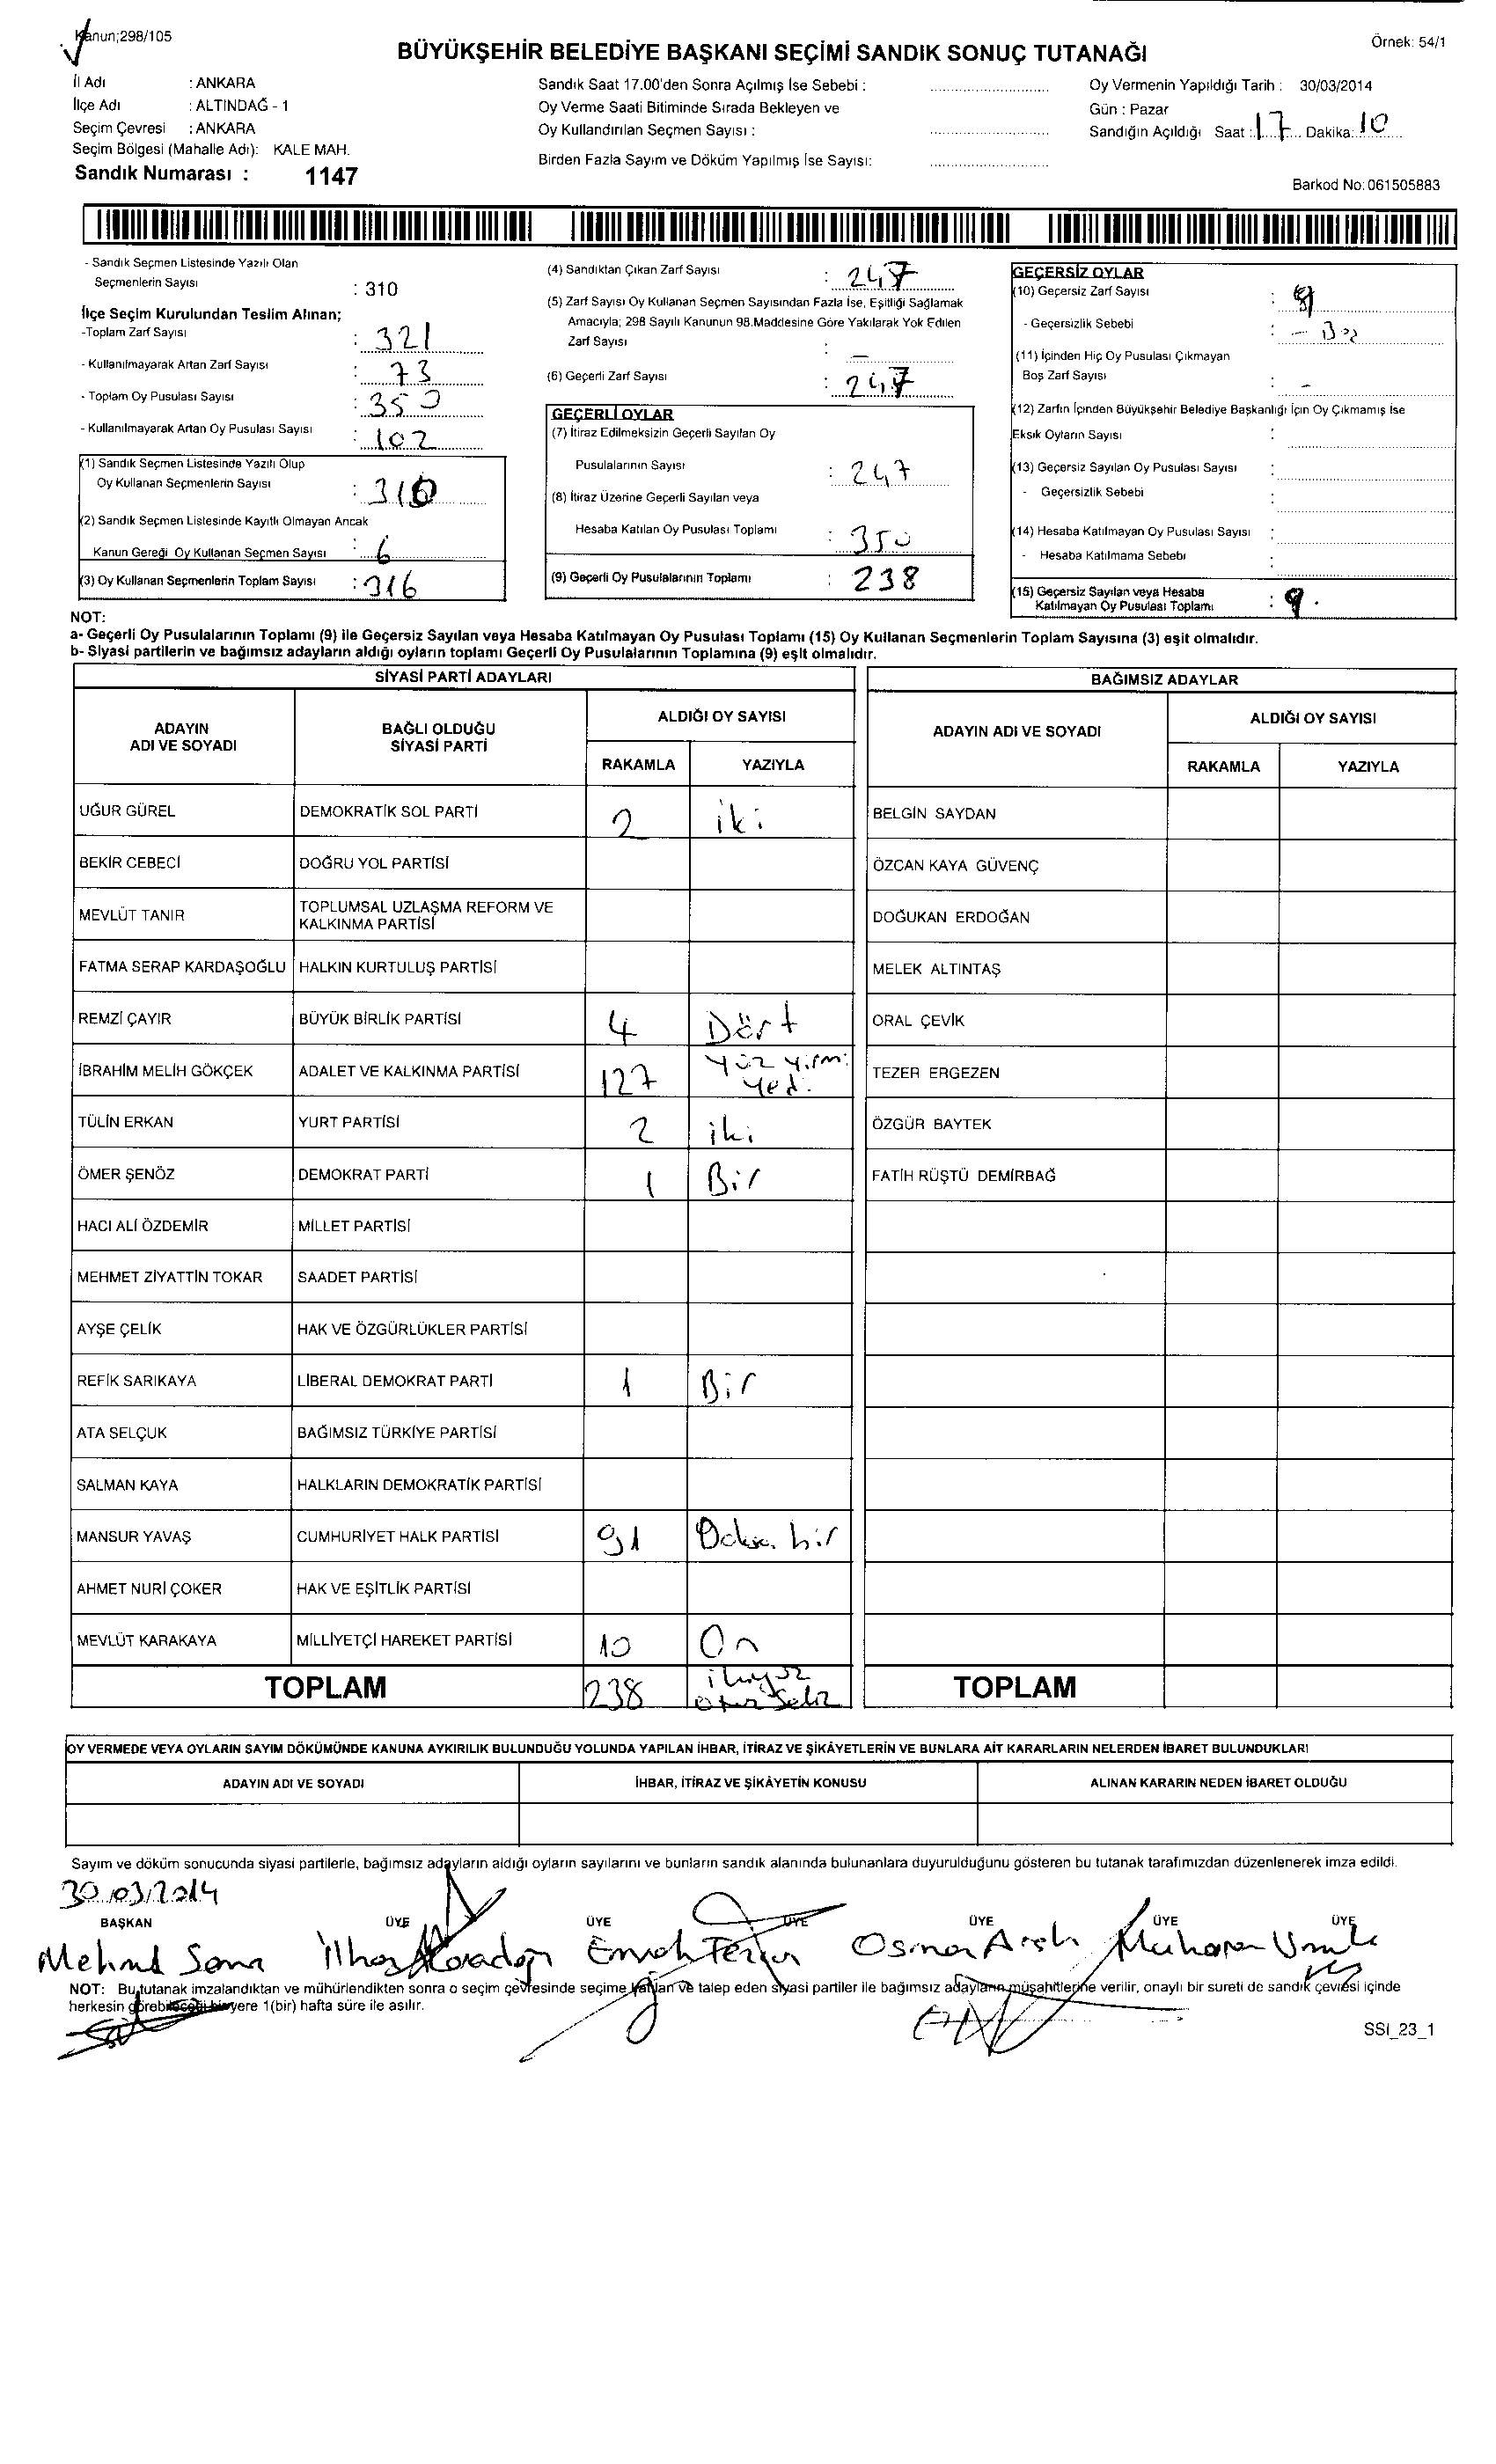 Kanun;298/105
Örnek: 54/1
BÜYÜKŞEHİR BELEDİYE BAŞKANI SEÇİMİ SANDIK SONUÇ TUTANAĞI
İl Adı : ANKARA
İlçe Adı : ALTINDAĞ - 1
Seçim Çevresi : ANKARA
Seçim Bölgesi (Mahalle Adı): KALE MAH.
Sandık Numarası : 1147
Sandık Saat 17.00'den Sonra Açılmış İse Sebebi :
Oy Verme Saati Bitiminde Sırada Bekleyen ve
Oy Kullandırılan Seçmen Sayısı :
Birden Fazla Sayım ve Döküm Yapılmış İse Sayısı:
Oy Vermenin Yapıldığı Tarih : 30/03/2014
Gün : Pazar
Sandığın Açıldığı Saat : 17 Dakika: 10
Barkod No: 061505883
- Sandık Seçmen Listesinde Yazılı Olan
Seçmenlerin Sayısı : 310
İlçe Seçim Kurulundan Teslim Alınan;
-Toplam Zarf Sayısı : 321
- Kullanılmayarak Artan Zarf Sayısı : 73
- Toplam Oy Pusulası Sayısı : 350
- Kullanılmayarak Artan Oy Pusulası Sayısı : 102
(1) Sandık Seçmen Listesinde Yazılı Olup
Oy Kullanan Seçmenlerin Sayısı : 310
(2) Sandık Seçmen Listesinde Kayıtlı Olmayan Ancak
Kanun Gereği Oy Kullanan Seçmen Sayısı : 6
(3) Oy Kullanan Seçmenlerin Toplam Sayısı : 316
(4) Sandıktan Çıkan Zarf Sayısı : 247
(5) Zarf Sayısı Oy Kullanan Seçmen Sayısından Fazla İse, Eşitliği Sağlamak
Amacıyla; 298 Sayılı Kanunun 98.Maddesine Göre Yakılarak Yok Edilen
Zarf Sayısı : —
(6) Geçerli Zarf Sayısı : 247
GEÇERLİ OYLAR
(7) İtiraz Edilmeksizin Geçerli Sayılan Oy
Pusulalarının Sayısı : 247
(8) İtiraz Üzerine Geçerli Sayılan veya
Hesaba Katılan Oy Pusulası Toplamı : 350
(9) Geçerli Oy Pusulalarının Toplamı : 238
GEÇERSİZ OYLAR
(10) Geçersiz Zarf Sayısı : 9
- Geçersizlik Sebebi :
(11) İçinden Hiç Oy Pusulası Çıkmayan
Boş Zarf Sayısı : -
(12) Zarfın İçinden Büyükşehir Belediye Başkanlığı İçin Oy Çıkmamış İse
Eksik Oyların Sayısı :
(13) Geçersiz Sayılan Oy Pusulası Sayısı :
- Geçersizlik Sebebi :
(14) Hesaba Katılmayan Oy Pusulası Sayısı :
- Hesaba Katılmama Sebebi :
(15) Geçersiz Sayılan veya Hesaba
Katılmayan Oy Pusulası Toplamı : 9.
NOT:
a- Geçerli Oy Pusulalarının Toplamı (9) ile Geçersiz Sayılan veya Hesaba Katılmayan Oy Pusulası Toplamı (15) Oy Kullanan Seçmenlerin Toplam Sayısına (3) eşit olmalıdır.
b- Siyasi partilerin ve bağımsız adayların aldığı oyların toplamı Geçerli Oy Pusulalarının Toplamına (9) eşit olmalıdır.
SİYASİ PARTİ ADAYLARI
ADAYIN ADI VE SOYADI BAĞLI OLDUĞU SİYASİ PARTİ ALDIĞI OY SAYISI
RAKAMLA YAZIYLA
UĞUR GÜREL DEMOKRATİK SOL PARTİ 2 iki
BEKİR CEBECİ DOĞRU YOL PARTİSİ
MEVLÜT TANIR TOPLUMSAL UZLAŞMA REFORM VE KALKINMA PARTİSİ
FATMA SERAP KARDAŞOĞLU HALKIN KURTULUŞ PARTİSİ
REMZİ ÇAYIR BÜYÜK BİRLİK PARTİSİ 4 Dört
İBRAHİM MELİH GÖKÇEK ADALET VE KALKINMA PARTİSİ 127 yüz yirmi yedi
TÜLİN ERKAN YURT PARTİSİ 2 iki
ÖMER ŞENÖZ DEMOKRAT PARTİ 1 Bir
HACI ALİ ÖZDEMİR MİLLET PARTİSİ
MEHMET ZİYATTİN TOKAR SAADET PARTİSİ
AYŞE ÇELİK HAK VE ÖZGÜRLÜKLER PARTİSİ
REFİK SARIKAYA LİBERAL DEMOKRAT PARTİ 1 Bir
ATA SELÇUK BAĞIMSIZ TÜRKİYE PARTİSİ
SALMAN KAYA HALKLARIN DEMOKRATİK PARTİSİ
MANSUR YAVAŞ CUMHURİYET HALK PARTİSİ 91 bir
AHMET NURİ ÇOKER HAK VE EŞİTLİK PARTİSİ
MEVLÜT KARAKAYA MİLLİYETÇİ HAREKET PARTİSİ 10 On
TOPLAM 238 ikiyüz otuz sekiz
BAĞIMSIZ ADAYLAR
ADAYIN ADI VE SOYADI ALDIĞI OY SAYISI
RAKAMLA YAZIYLA
BELGİN SAYDAN
ÖZCAN KAYA GÜVENÇ
DOĞUKAN ERDOĞAN
MELEK ALTINTAŞ
ORAL ÇEVİK
TEZER ERGEZEN
ÖZGÜR BAYTEK
FATİH RÜŞTÜ DEMİRBAĞ
TOPLAM
OY VERMEDE VEYA OYLARIN SAYIM DÖKÜMÜNDE KANUNA AYKIRILIK BULUNDUĞU YOLUNDA YAPILAN İHBAR, İTİRAZ VE ŞİKÂYETLERİN VE BUNLARA AİT KARARLARIN NELERDEN İBARET BULUNDUKLARI
ADAYIN ADI VE SOYADI İHBAR, İTİRAZ VE ŞİKÂYETİN KONUSU ALINAN KARARIN NEDEN İBARET OLDUĞU
Sayım ve döküm sonucunda siyasi partilerle, bağımsız adayların aldığı oyların sayılarını ve bunların sandık alanında bulunanlara duyurulduğunu gösteren bu tutanak tarafımızdan düzenlenerek imza edildi.
30/03/2014
BAŞKAN ÜYE ÜYE ÜYE ÜYE ÜYE ÜYE
Osman
NOT: Bu tutanak imzalandıktan ve mühürlendikten sonra o seçim çevresinde seçime katılan ve talep eden siyasi partiler ile bağımsız adayların müşahitlerine verilir, onaylı bir sureti de sandık çevresi içinde
herkesin görebileceği bir yere 1(bir) hafta süre ile asılır.
SSI_23_1